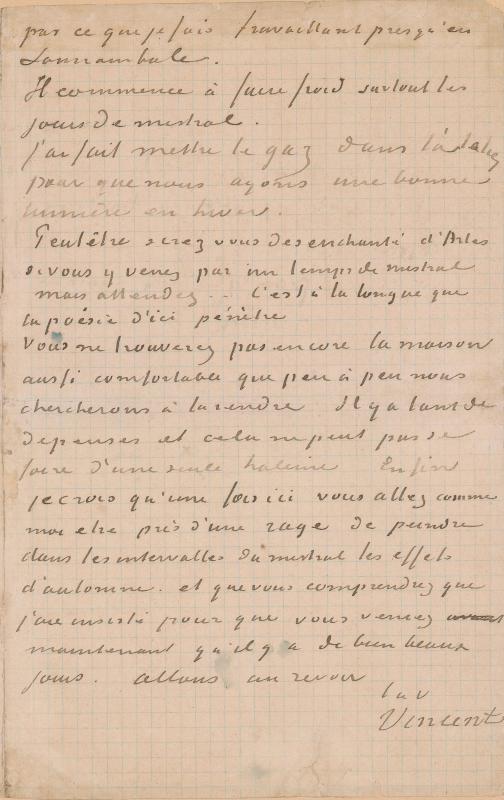 par ce que je fais travaillant presqu'en
somnambule.
Il commence à faire froid surtout les
jours de mistral.
J'ai fait mettre le gaz dans l'atelier
pour que nous ayons une bonne
lumière en hiver.
Peutêtre serez vous desenchanté d'Arles
si vous y venez par un temps de mistral
mais attendez .. C'est à la longue que
la poésie d'ici pénètre
Vous ne trouverez pas encore la maison
aussi comfortable que peu à peu nous
chercherons à la rendre Il y a tant de
depenses et cela ne peut pas se
faire d'une seule haleine Enfin
je crois qu'une fois ici vous allez comme
moi etre pris d'une rage de peindre
dans les intervalles du mistral les effets
d'automne. et que vous comprendrez que
j'aie insisté pour que vous veniez avant
maintenant qu'il y a de bien beaux
jours. allons au revoir
t.à v
Vincent